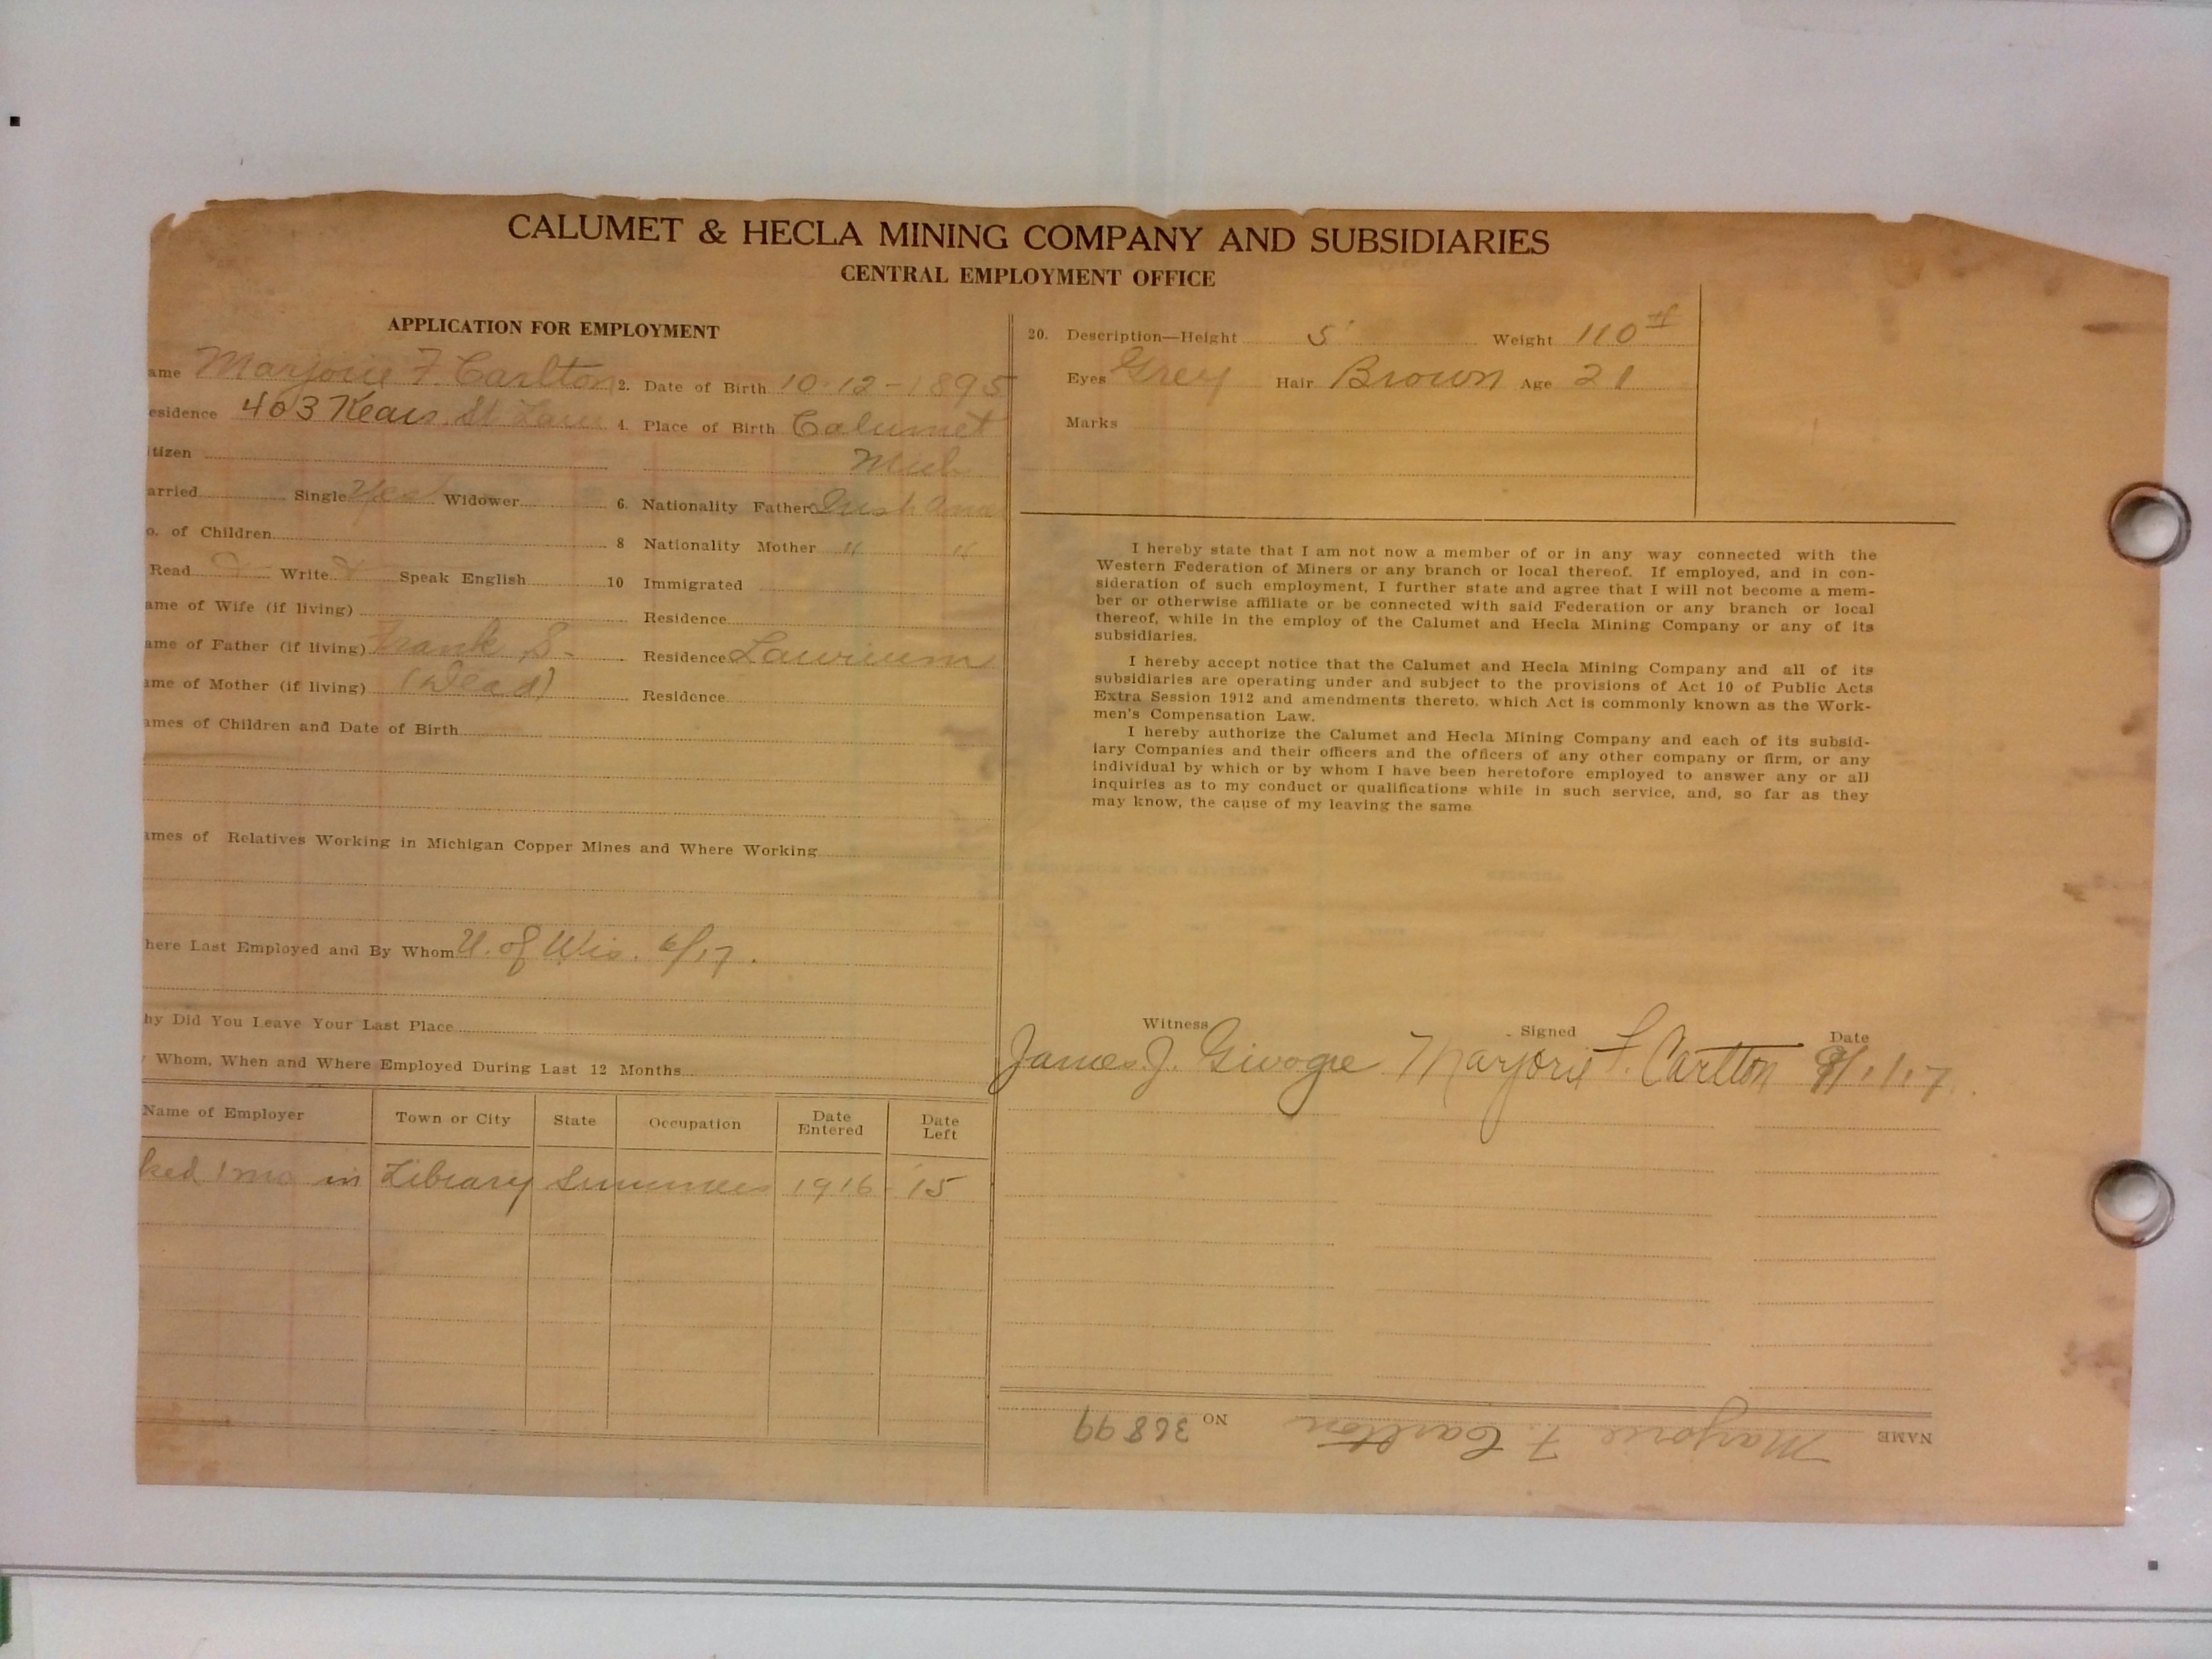 CALUMET & HECLA MINING COMPANY AND SUBSIDIARIES
CENTRAL EMPLOYMENT OFFICE
APPLICATION FOR EMPLOYMENT
ame Marjorie F. Carlton 2. Date of Birth 10-12-1895
esidence 403 Kears. St 4. Place of Birth Calumet
tizen Mich
arried Single Yes Widower 6. Nationality Father Irish Am
o. of Children 8 Nationality Mother " "
Read Write Speak English 10 Immigrated
ame of Wife (if living) Residence
ame of Father (if living) Frank S. Residence Laurium
ame of Mother (if living) (Dead) Residence
ames of Children and Date of Birth
ames of Relatives Working in Michigan Copper Mines and Where Working
here Last Employed and By Whom U. of Wis. 6/17.
hy Did You Leave Your Last Place
Whom, When and Where Employed During Last 12 Months
Name of Employer Town or City State Occupation Date Entered Date Left
ked 1 mo in Library Summer 1916 - '15
20. Description—Height 5' Weight 110#
Eyes Grey Hair Brown Age 21
Marks
I hereby state that I am not now a member of or in any way connected with the
Western Federation of Miners or any branch or local thereof. If employed, and in con-
sideration of such employment, I further state and agree that I will not become a mem-
ber or otherwise affiliate or be connected with said Federation or any branch or local
thereof, while in the employ of the Calumet and Hecla Mining Company or any of its
subsidiaries.
I hereby accept notice that the Calumet and Hecla Mining Company and all of its
subsidiaries are operating under and subject to the provisions of Act 10 of Public Acts
Extra Session 1912 and amendments thereto, which Act is commonly known as the Work-
men's Compensation Law.
I hereby authorize the Calumet and Hecla Mining Company and each of its subsid-
iary Companies and their officers and the officers of any other company or firm, or any
individual by which or by whom I have been heretofore employed to answer any or all
inquiries as to my conduct or qualifications while in such service, and, so far as they
may know, the cause of my leaving the same
Witness Signed Date
James J. Marjorie F. Carlton
NAME Marjorie F. Carlton NO. 36899